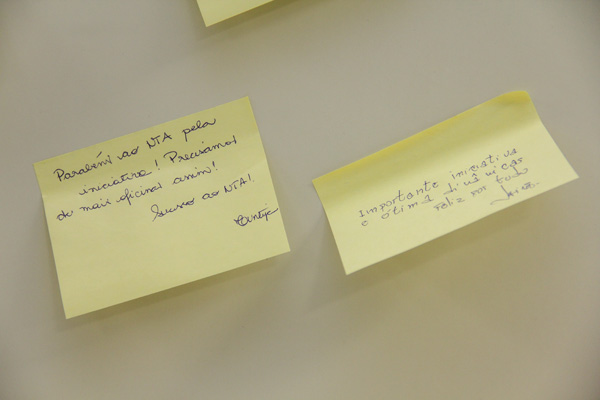 Parabéns ao NTA pela
iniciativa! Precisamos
de mais oficinas assim!
Sucesso ao NTA!
Importante iniciativa
e ótima dinâmicas
feliz por tudo